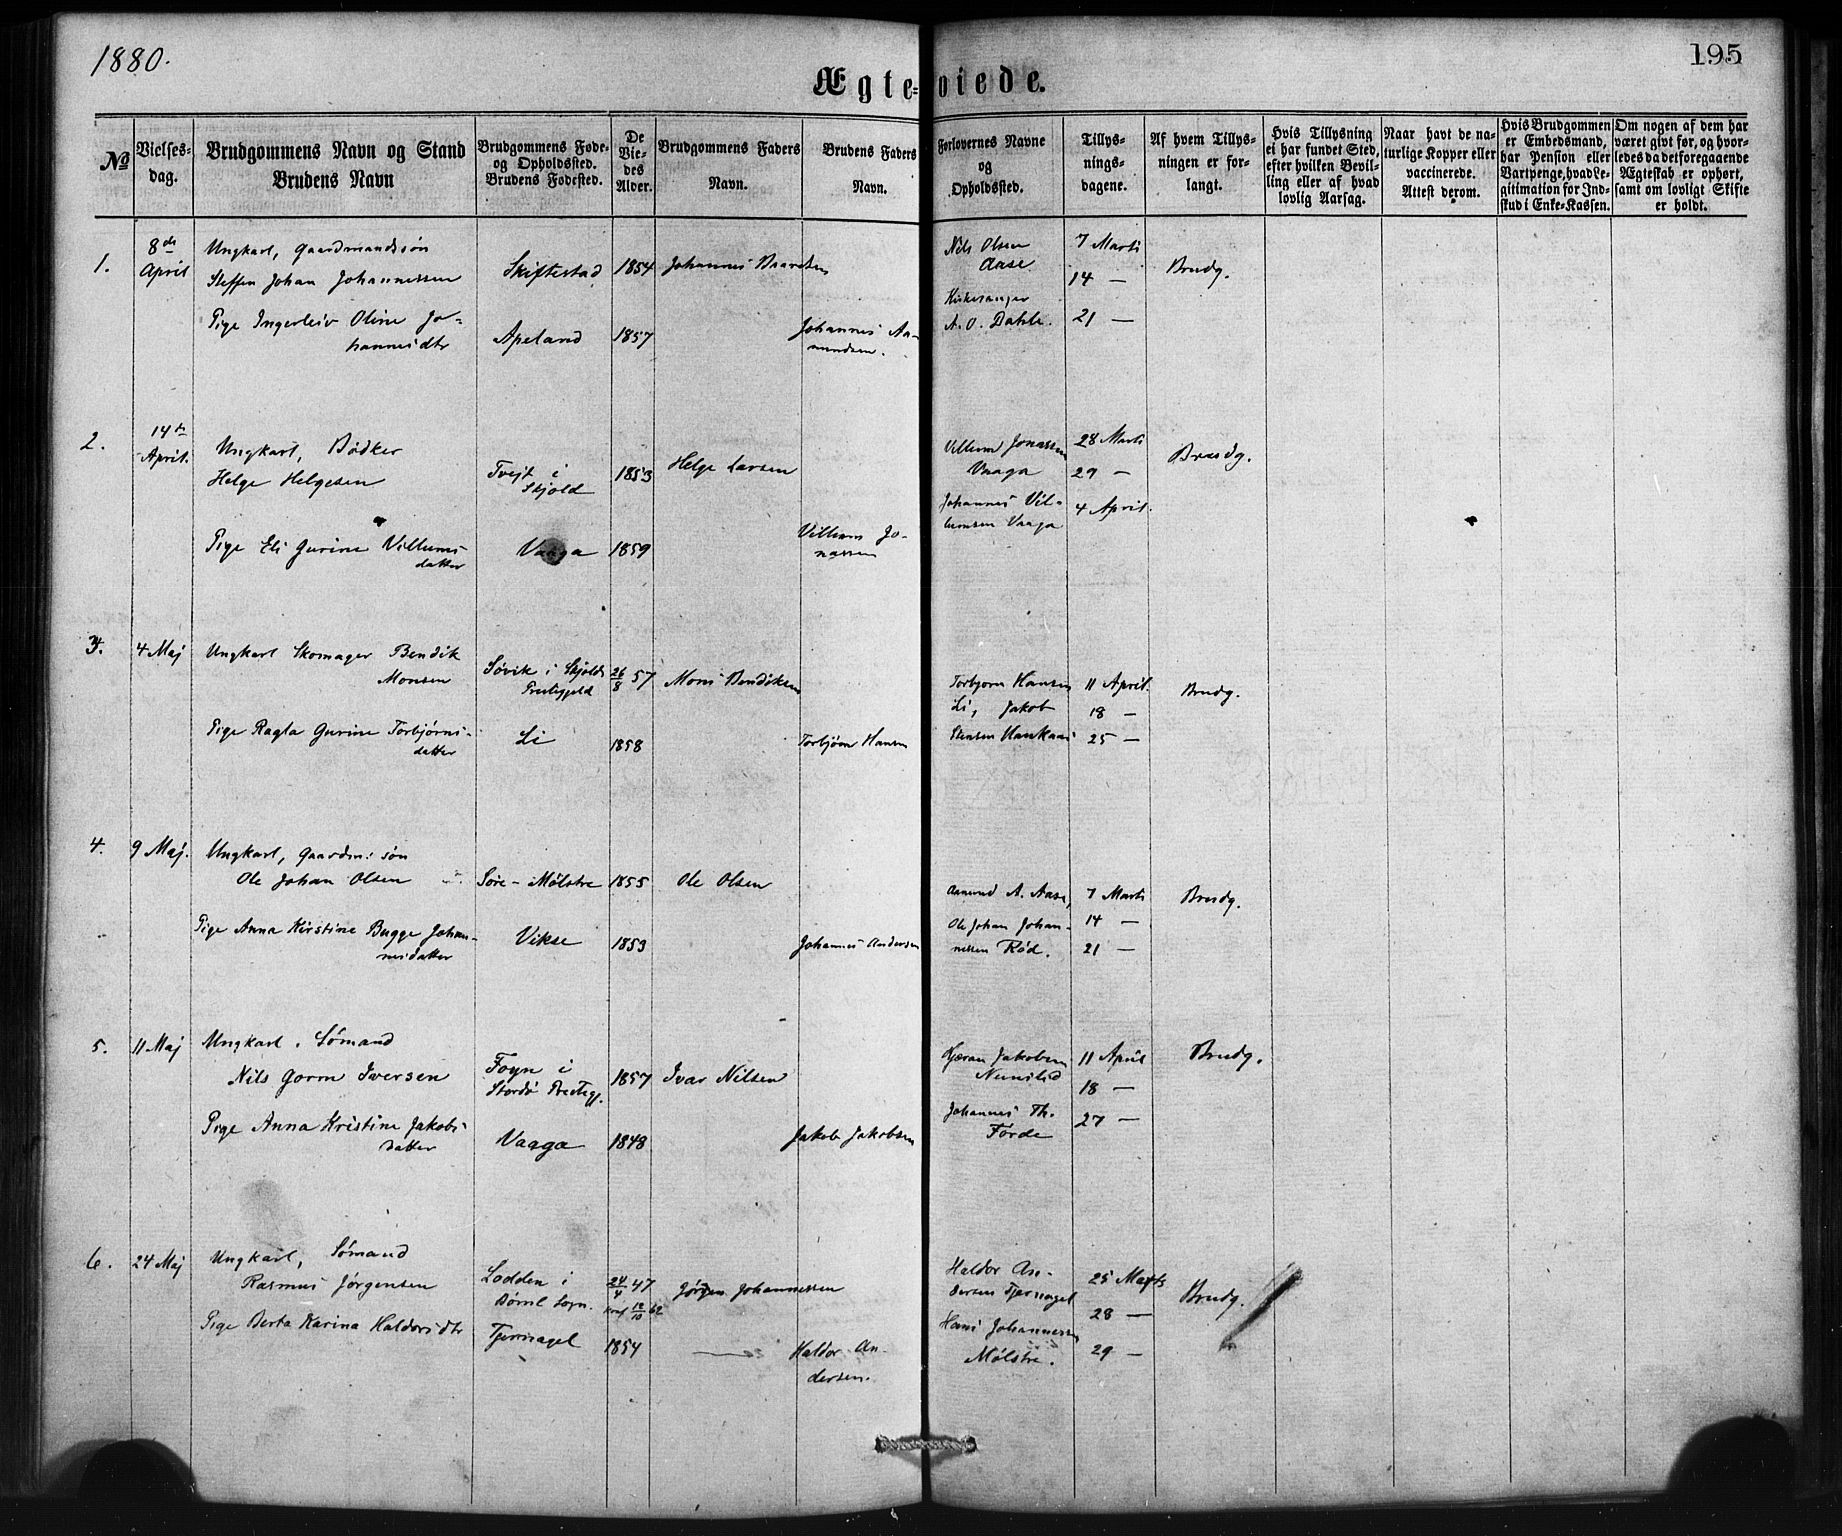 1880.
195
Ægte-viede.
No
Vielses-dag.
Brudgommens Navn og Stand
Brudens Navn
Brudgommens Føde- og Opholdssted.
Brudens Fødested.
De Viedes Alder.
Brudgommens Faders Navn.
Brudens Faders Navn.
Forlovernes Navne og Opholdssted.
Tillysningsdagene.
Af hvem Tillysningen er forlangt.
Hvis Tillysning ei har fundet Sted, efter hvilken Bevilling eller af hvad lovlig Aarsag.
Naar havt de naturlige Kopper eller vaccinerede. Attest derom.
Hvis Brudgommen er Embedsmand, har Pension eller Vartpenge, hvad Legitimation for Indskud i Enke-Kassen.
Om nogen af dem har været gift før, og hvorledes da det foregaaende Ægteskab er ophørt, samt om lovligt Skifte er holdt.
1.
8de April
Ungkarl, Gaardmandssøn
Steffen Johan Johannessen
Skiftestad
1854
Johannes Baardsen
Pige Ingerleiv Oline Jo-
hannesdtr
Apeland
1857
Johannes Aa-
mundsen.
Nils Olsen
Aase
Kirkesanger
A. O. Dahle.
7 Marts
14 —
21 —
Brudg.
2.
14de April.
Ungkarl, Bødker
Helge Helgesen
Tvejt i
Skjold
1853
Helge Larsen
Pige Eli Gurine Villums-
datter
Vaaga
1859
Villum Jo-
nassen
Villum Jonassen
Vaaga
Johannes Vil-
lumsen Vaaga
28 Marts
29 —
4 April.
Brudg.
3.
4 Maj
Ungkarl Skomager Bendik
Monsen
Søvik i Skjolds
Prestegjeld
26/8 57
Mons Bendiksen
Pige Ragla Gurine Torbjørns-
datter
Li
1858
Torbjørn Hansen
Torbjørn Hansen
Li, Jakob
11 April.
18 —
25 —
Brudg.
4.
9 Maj.
Ungkarl, Gaardm: søn
Ole Johan Olsen
Søre-Mølstre
1855
Ole Olsen
Pige Anna Kirstine Bugge Johan-
nesdatter
Vikse
1853
Johannes Andersen
Aamund A. Aase,
Ole Johan Johan-
nessen Rød.
7 Marts
14 —
21 —
Brudg.
5.
11 Maj
Ungkarl, Sømand
Nils Gorm Iversen
Føyn i
Stordø Prestegj.
1857
Ivar Nilsen
Pige Anna Kristine Jakobs-
datter
Vaaga
1848
Jakob Jakobsen
Kjæran Jakobsen
Nunslid
Johannes Th.
Førde
11 April
18 —
27 —
Brudg.
6.
24 Maj
Ungkarl, Sømand
Rasmus Jørgensen
Lodden i
Bøml Sogn.
24/4 47
Konf 12/10 62
Jørgen Johannessen
Pige Berta Karina Haldorsdtr
Tjernagel
1854
Haldor An-
dersen.
Haldor An-
dersen Tjernagel
Hans Johannessen
Mølstre.
25 Marts
28 —
29 —
Brudg.